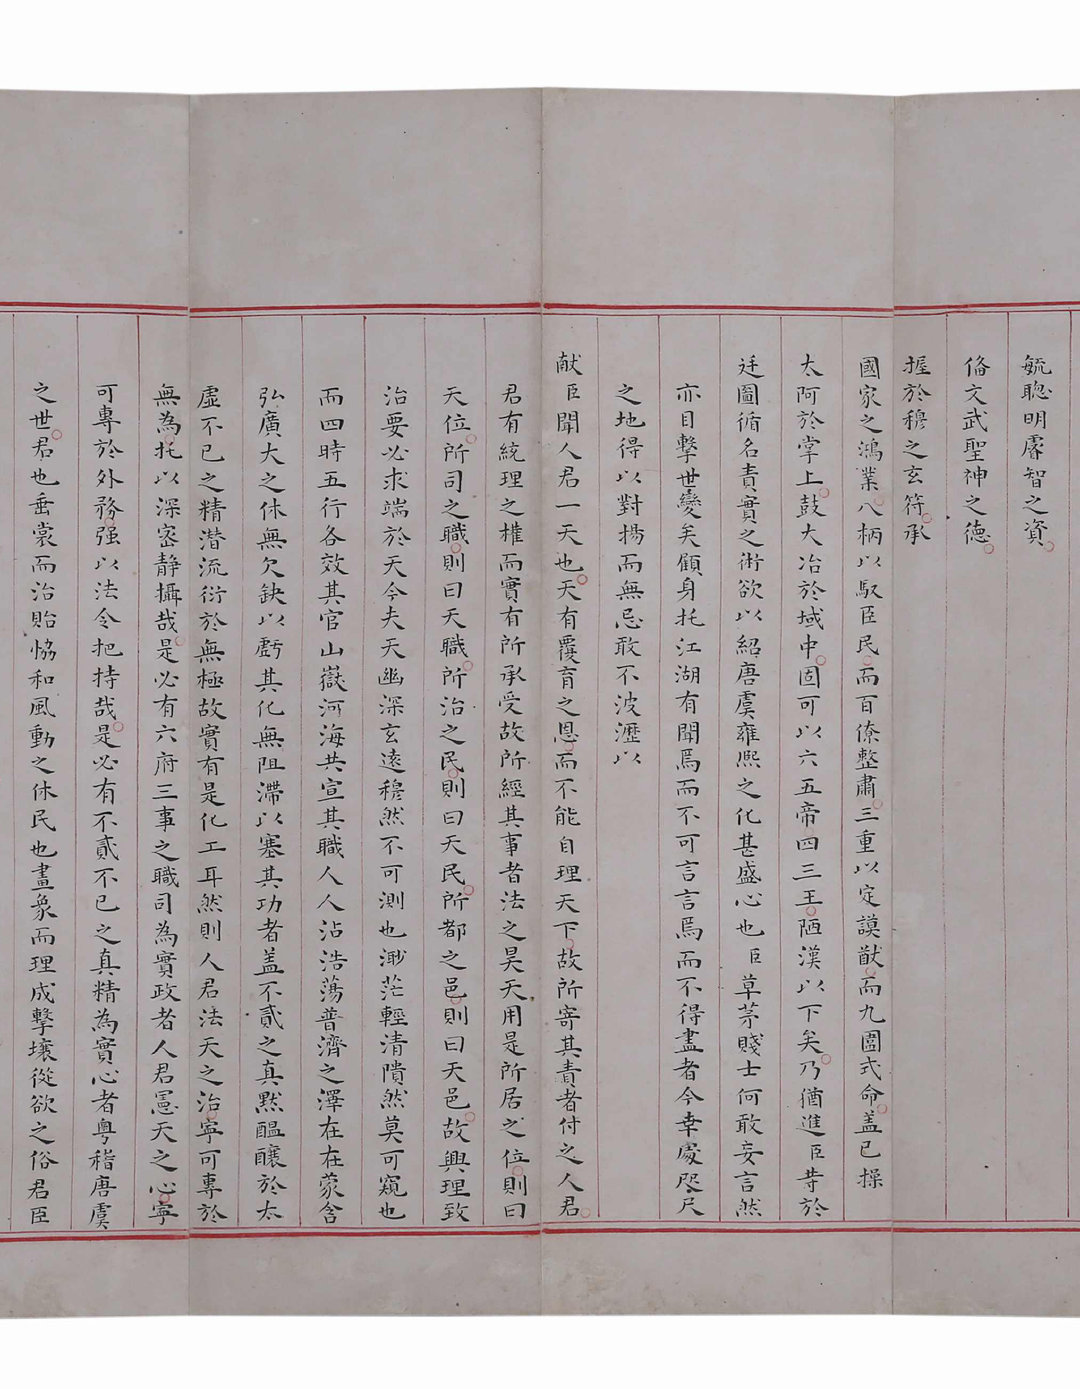 毓聰明睿智之資
俻文武聖神之德
握於穆之玄符承
國家之鴻業八柄以馭臣民而百僚整肅三重以定謨猷而九圍式命盖已操
太阿於掌上鼓大冶於域中固可以六五帝四三王陋漢以下矣乃猶進臣等於
廷圖循名責實之術欲以紹唐虞雍熙之化甚盛心也臣草茅賤士何敢妄言然
亦目擊世變矣顧身托江湖有聞焉而不可言言焉而不得盡者今幸處咫尺
之地得以對揚而無忌敢不披瀝以
献臣聞人君一天也天有覆育之恩而不能自理天下故所寄其責者付之人君
君有統理之權而實有所承受故所經其事者法之昊天用是所居之位則曰
天位所司之職則曰天職所治之民則曰天民所都之邑則曰天邑故興理致
治要必求端於天今夫天幽深玄遠穆然不可測也渺茫輕清隤然莫可窺也
而四時五行各效其官山嶽河海共宣其職人人沾浩蕩普濟之澤在在蒙含
弘廣大之休無欠缺以虧其化無阻滯以塞其功者盖不貳之真默醖釀於太
虛不已之精潛流衍於無極故實有是化工耳然則人君法天之治寧可專於
無為托以深密靜攝哉是必有六府三事之職司為實政者人君憲天之心寧
可專於外務强以法令把持哉是必有不貳不已之真精為實心者粵稽唐虞
之世君也垂裳而治貽恊和風動之休民也畫象而理成擊壤從欲之俗君臣